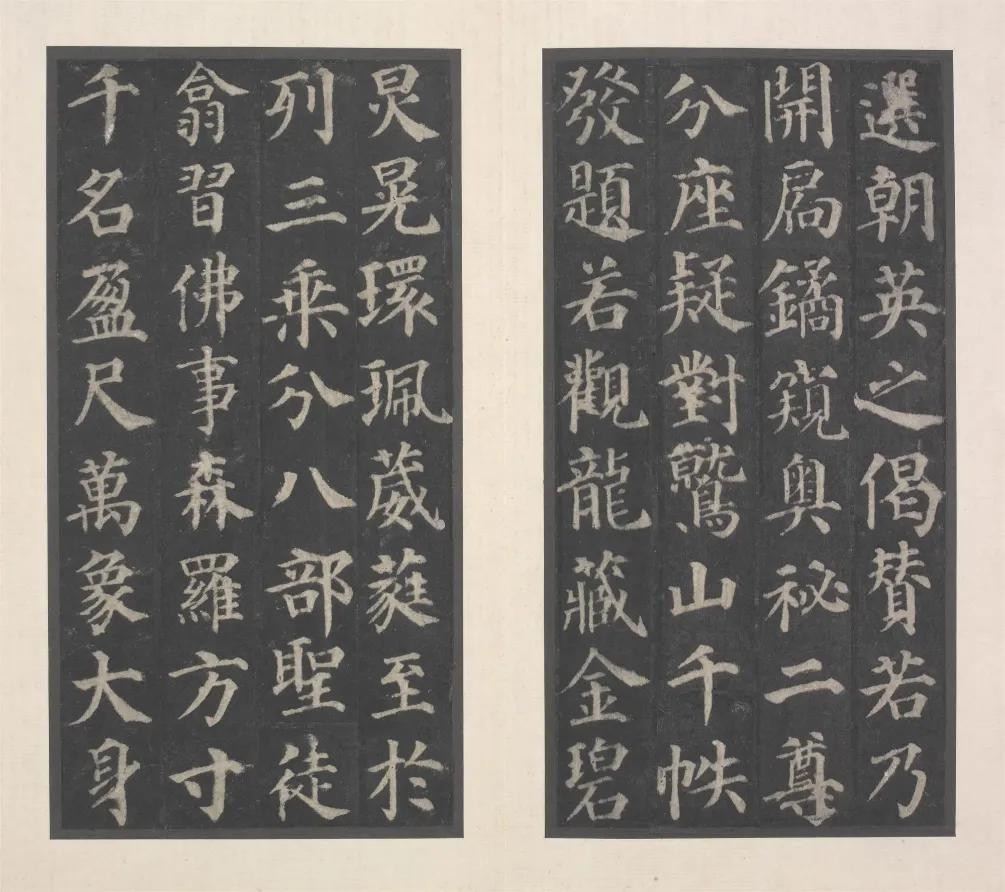 選朝英之偈賛若乃
開扄鐍窺奧祕二尊
分座疑對鷲山千帙
發題若觀龍藏金碧
炅晃環珮葳蕤至於
列三乗分八部聖徒
翕習佛事森羅方寸
千名盈尺萬象大身